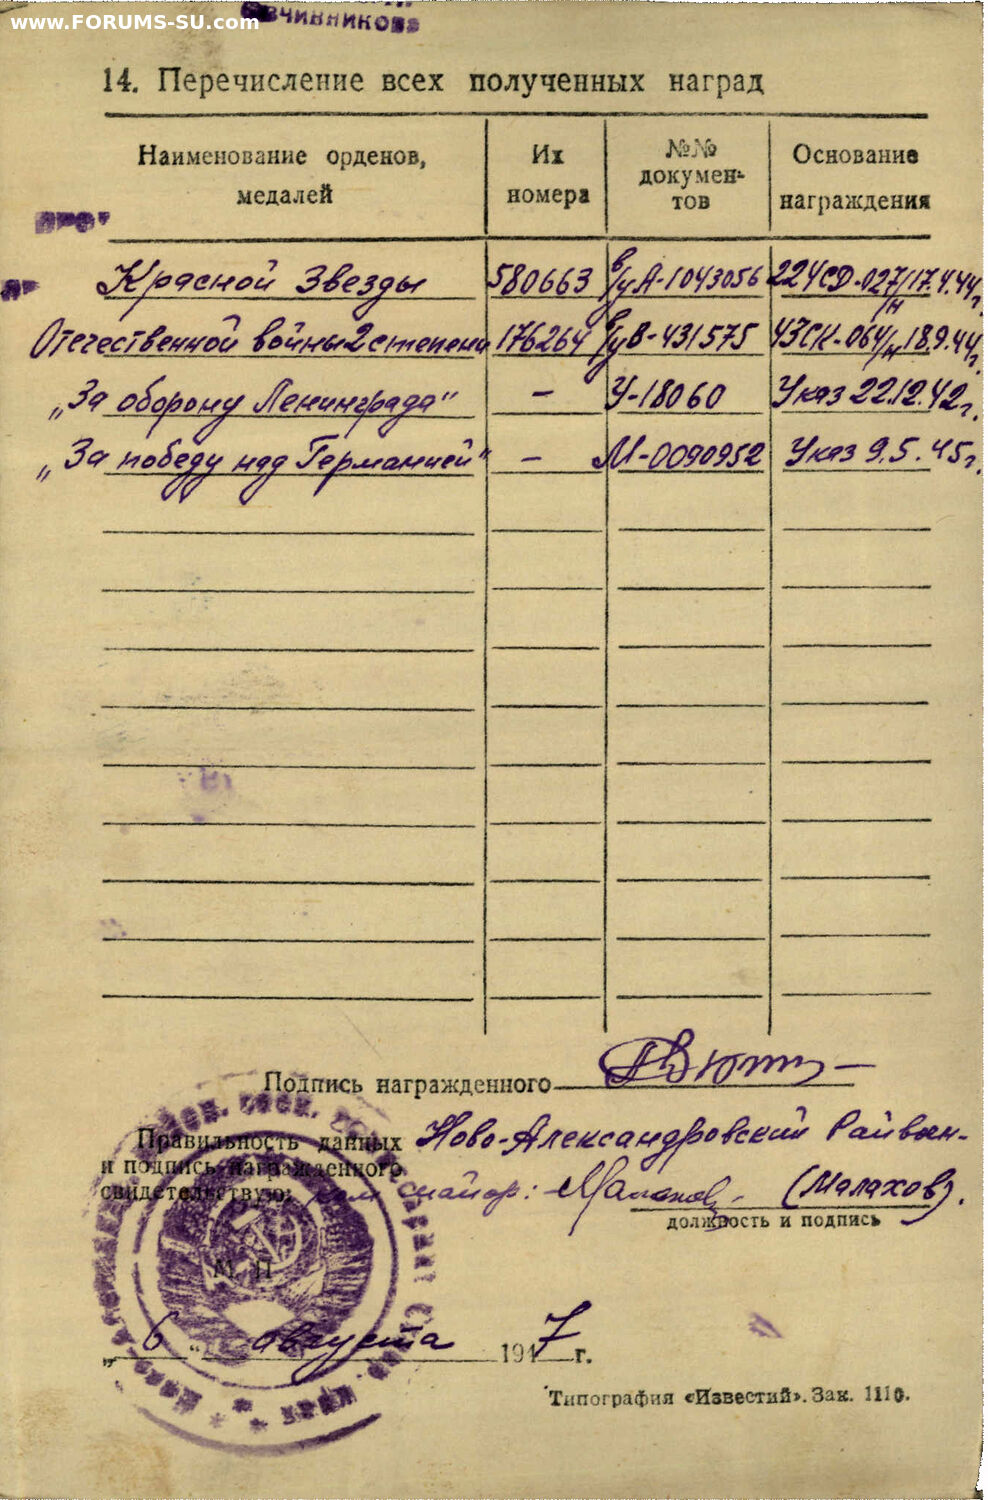 www.FORUMS-SU.com
ВЧИННИКОВА
14. Перечисление всех полученных наград
Наименование орденов, медалей
Их номера
№№ докумен-тов
Основание награждения
Красной Звезды 580663 в/у А-1043056 224СД-027/н 17.4.44г.
Отечественной войны 2 степени 176264 в/у В-431575 43СК-064/н 18.9.44г.
„За оборону Ленинграда“ — У-18060 Указ 22.12.42г.
„За победу над Германией“ — М-0090952 Указ 9.5.45г.
Подпись награжденного
Правильность данных Ново-Александровский Райвоен-
и подпись награжденного
свидетельствую: ком майор: Малахов. (Малахов).
должность и подпись
М. П.
„6“ августа 1947 г.
Типография «Известий». Зак. 1110.